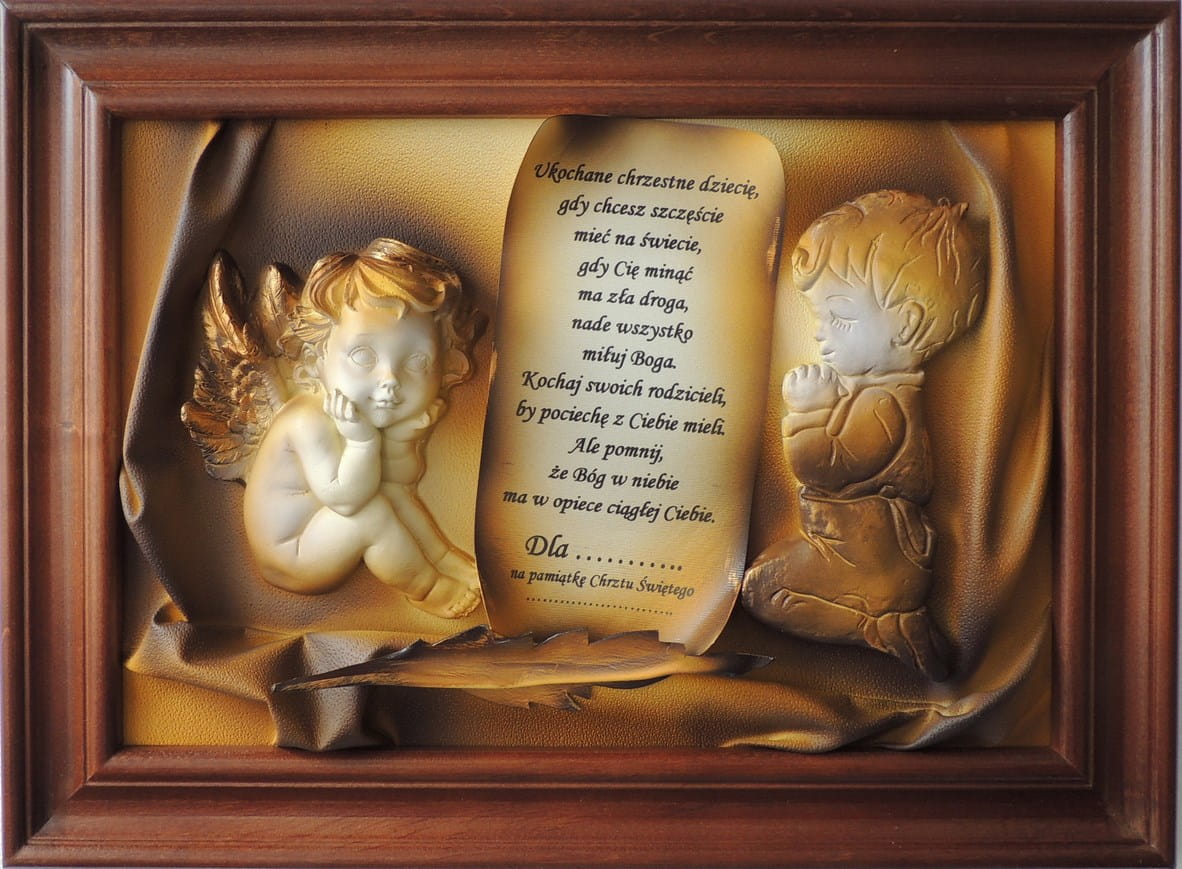 Ukochane chrzestne dziecię,
gdy chcesz szczęście
mieć na świecie,
gdy Cię minąć
ma zła droga,
nade wszystko
miłuj Boga.
Kochaj swoich rodzicieli,
by pociechę z Ciebie mieli.
Ale pomnij,
że Bóg w niebie
ma w opiece ciągłej Ciebie.
Dla ...........
na pamiątkę Chrztu Świętego
........................